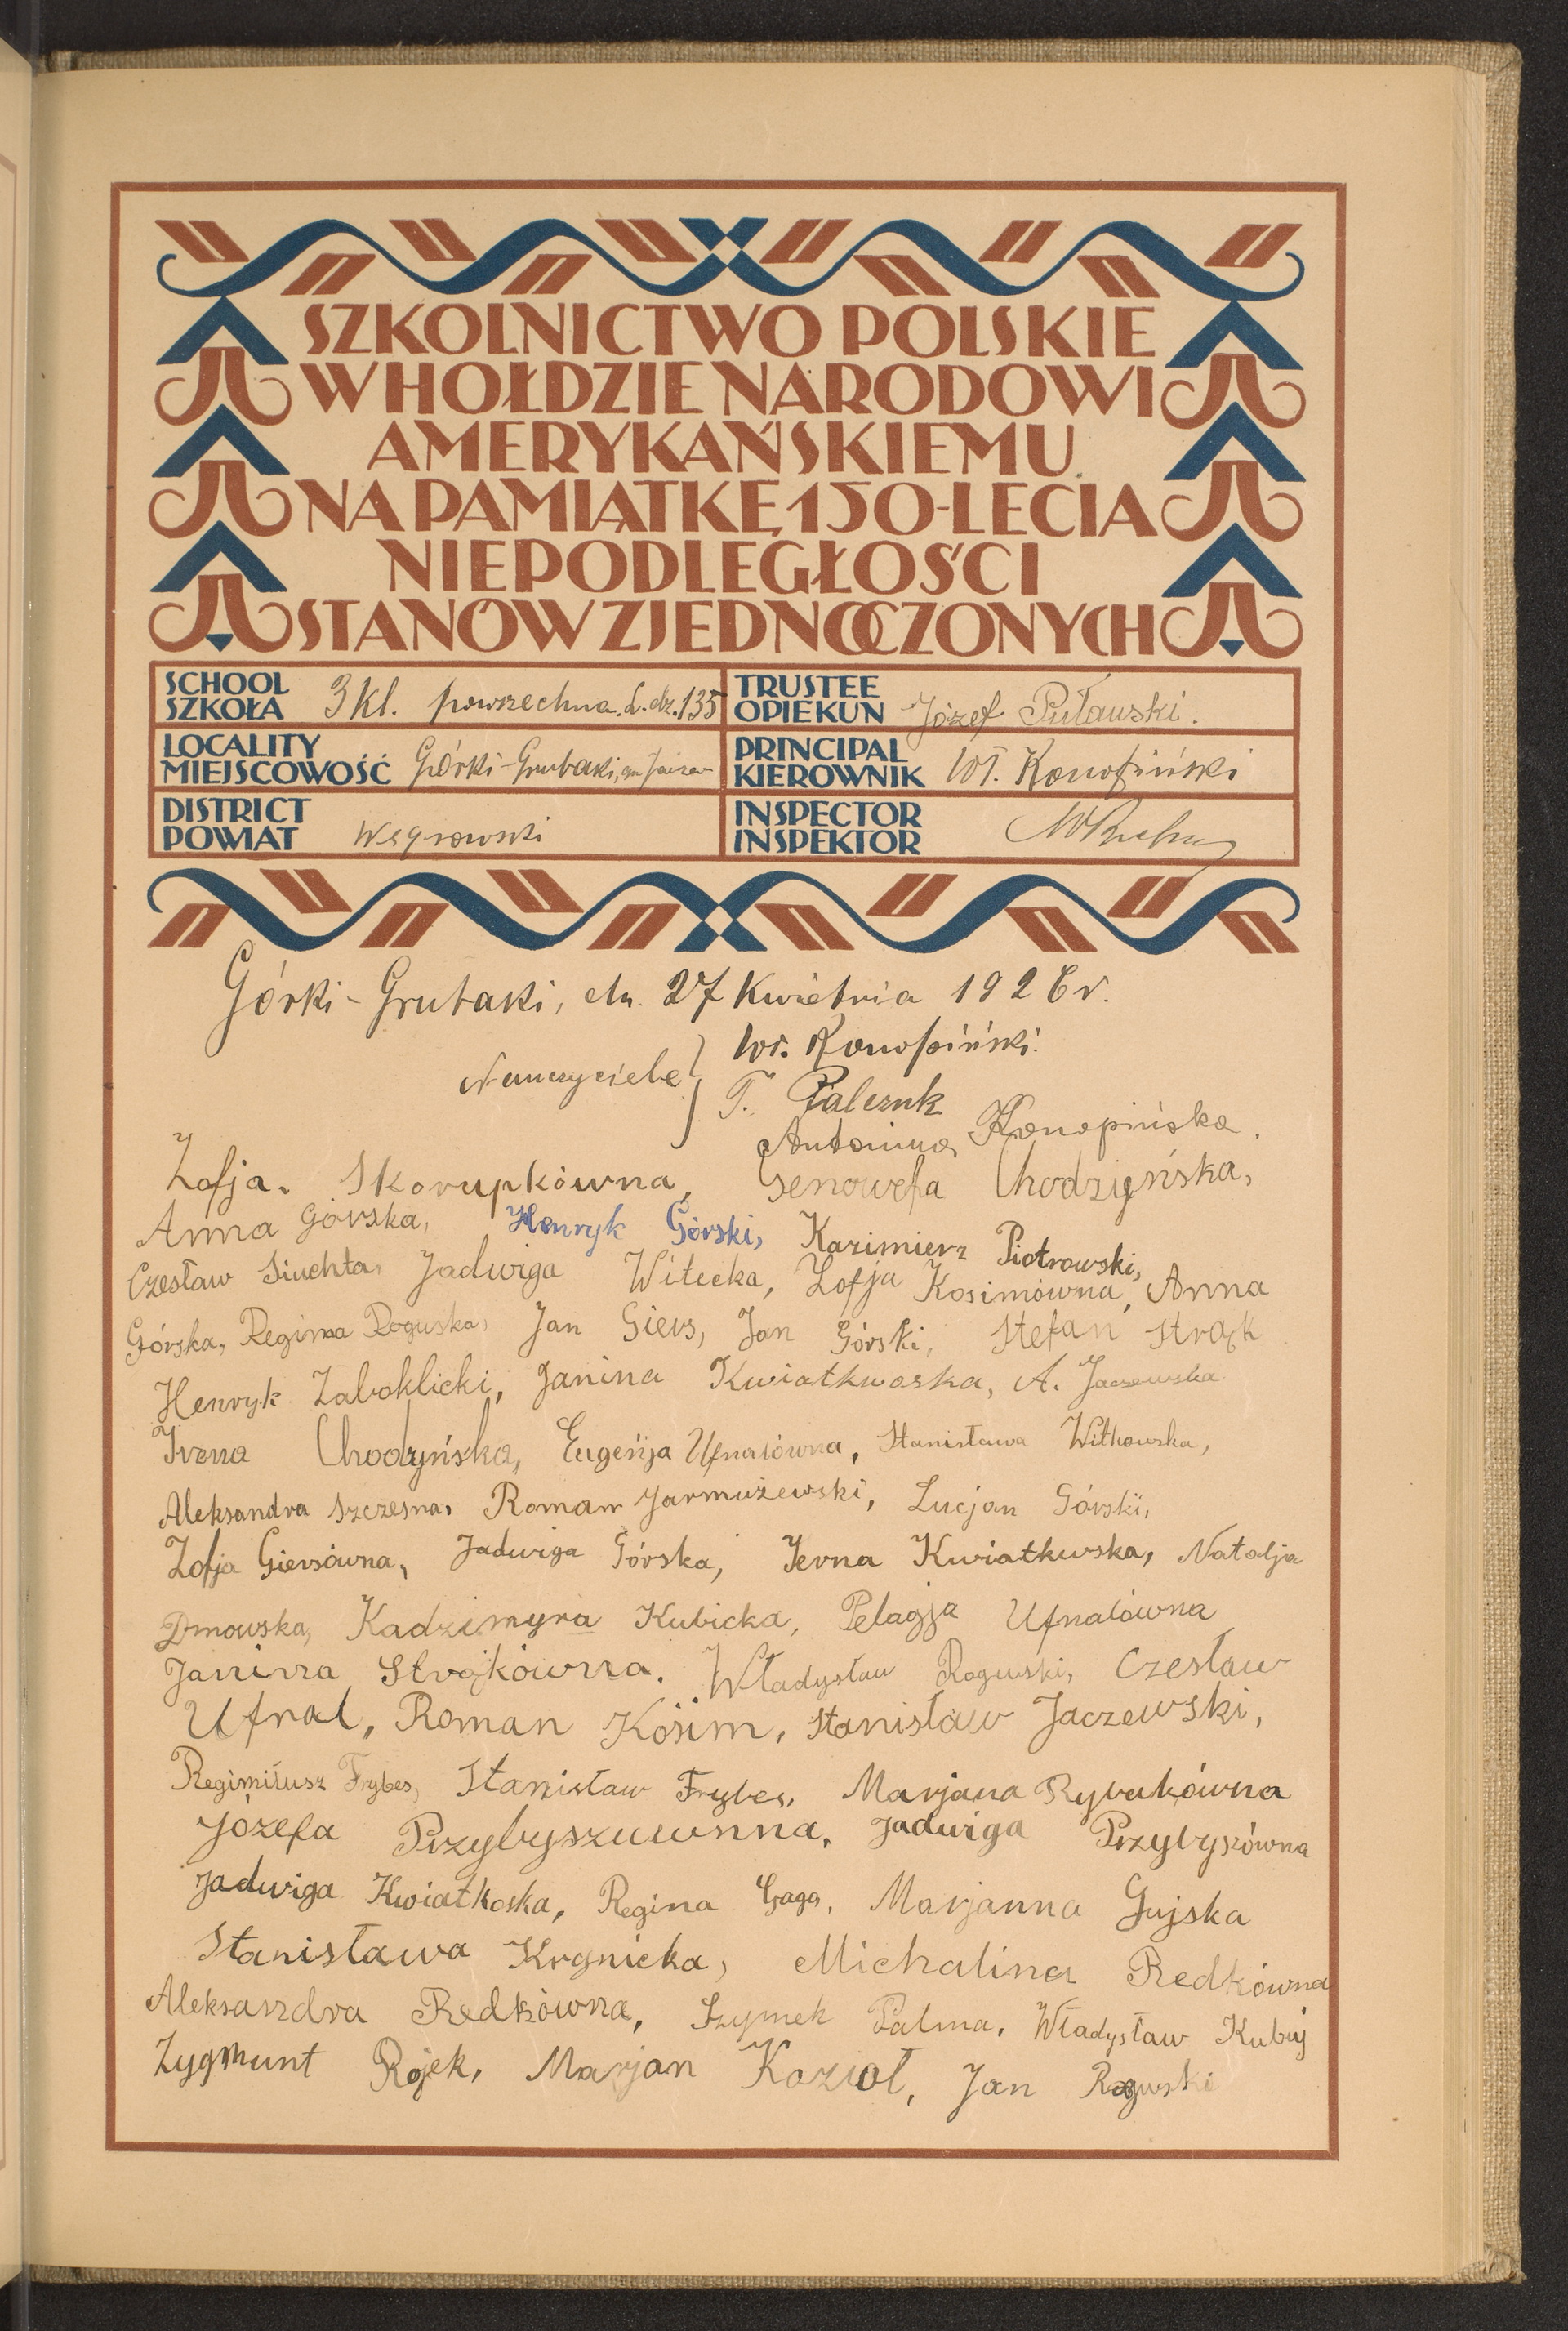 SZKOLNICTWO POLSKIE
W HOŁDZIE NARODOWI
AMERYKAŃSKIEMU
NA PAMIĄTKĘ 150-LECIA
NIEPODLEGŁOŚCI
STANÓW ZJEDNOCZONYCH
SCHOOL SZKOŁA 3 kl. powszechna. L. dz. 135
TRUSTEE OPIEKUN Józef Puławski.
LOCALITY MIEJSCOWOŚĆ Górki-Grubaki,
PRINCIPAL KIEROWNIK Wł. Konopiński
DISTRICT POWIAT Węgrowski
INSPECTOR INSPEKTOR
Górki-Grubaki, dn. 27 Kwietnia 1926 r.
Wł. Konopiński.
Nauczyciele
T. Palczuk
Antonina Konopińska.
Zofja Skorupkówna, Genowefa Chodzyńska,
Anna Górska, Henryk Górski, Kazimierz Piotrowski,
Czesław Siuchta, Jadwiga Witecka, Zofja Kosimówna, Anna
Górska, Regina Roguska, Jan Giers, Jan Górski, Stefan Strąk
Henryk Zaboklicki, Janina Kwiatkwoska, A. Jaczewska
Irena Chodzyńska, Eugenja Ufnalówna, Stanisława Witkowska,
Aleksandra Szczesna, Roman Jarmużewski, Lucjan Górski,
Zofja Giersówna, Jadwiga Górska, Jerna Kwiatkwska, Natalja
Dmowska, Kadzimyra Kubicka, Pelagja Ufnalówna
Janinna Strąkówna. Władysław Roguski, Czesław
Ufnal, Roman Kosim, Stanisław Jaczewski,
Regimiłusz Frybes, Stanisław Frybes, Marjana Rybakówna
Józefa Przybyszuwnna, Jadwiga Przybyszówna
Jadwiga Kwiatkoska, Regina Gaga, Marjanna Gujska
Stanisława Krynicka, Michalina Redkówna
Aleksandra Redkówna, Szymek Palma, Władysław Kubuj
Zygmunt Rojek, Marjan Kozioł, Jan Roguski